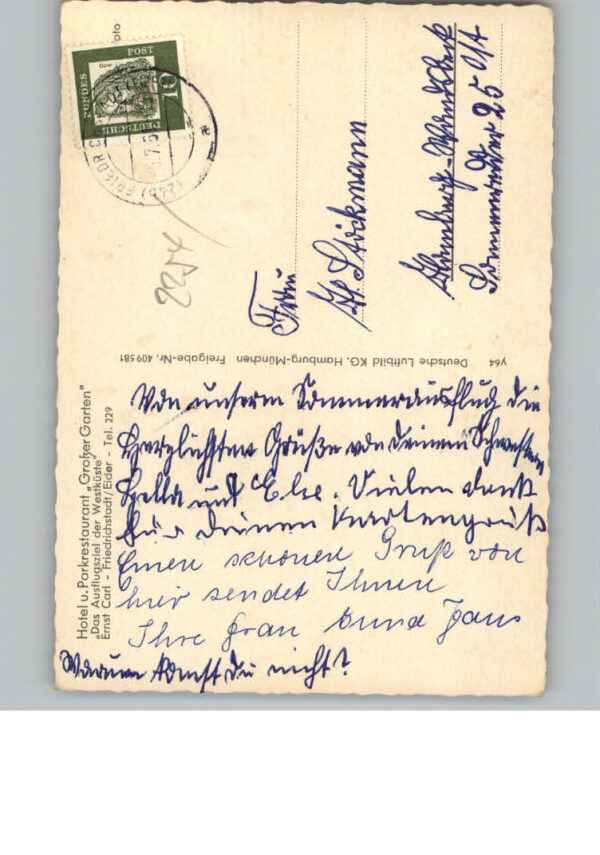 Hotel u. Parkrestaurant „Großer Garten"
„Das Ausflugsziel der Westküste"
Ernst Carl - Friedrichstadt/Eider - Tel. 229
Von unserm Sommerausflug die
Herzlichsten Grüße von Deinen Schwestern
Hella und Else. Vielen dank
für Deinen Kartengruß
Einen schönen Gruß von
hier sendet Ihnen
Ihre Frau Anna
Warum kommst Du nicht?
y64 Deutsche Luftbild KG. Hamburg-München Freigabe-Nr. 409581
oto
DEUTSCHE
BUNDES
POST
10
(24b) FRIEDR
2254
Frau
Stöckmann
Hamburg-Wandsbek
25 Ost